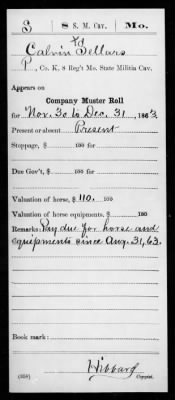 S 8 S. M. Cav. Mo.
Calvin Sellars
P, Co. K, 8 Reg't Mo. State Militia Cav.
Appears on
Company Muster Roll
for Nov. 30 to Dec. 31, 1863.
Present or absent Present
Stoppage, $ 100 for
Due Gov't, $ 100 for
Valuation of horse, $ 110. 100
Valuation of horse equipments, $ 100
Remarks: Pay due for horse and
equipments since Aug. 31, 63.
Book mark:
Hibbard
(858) Copyist.